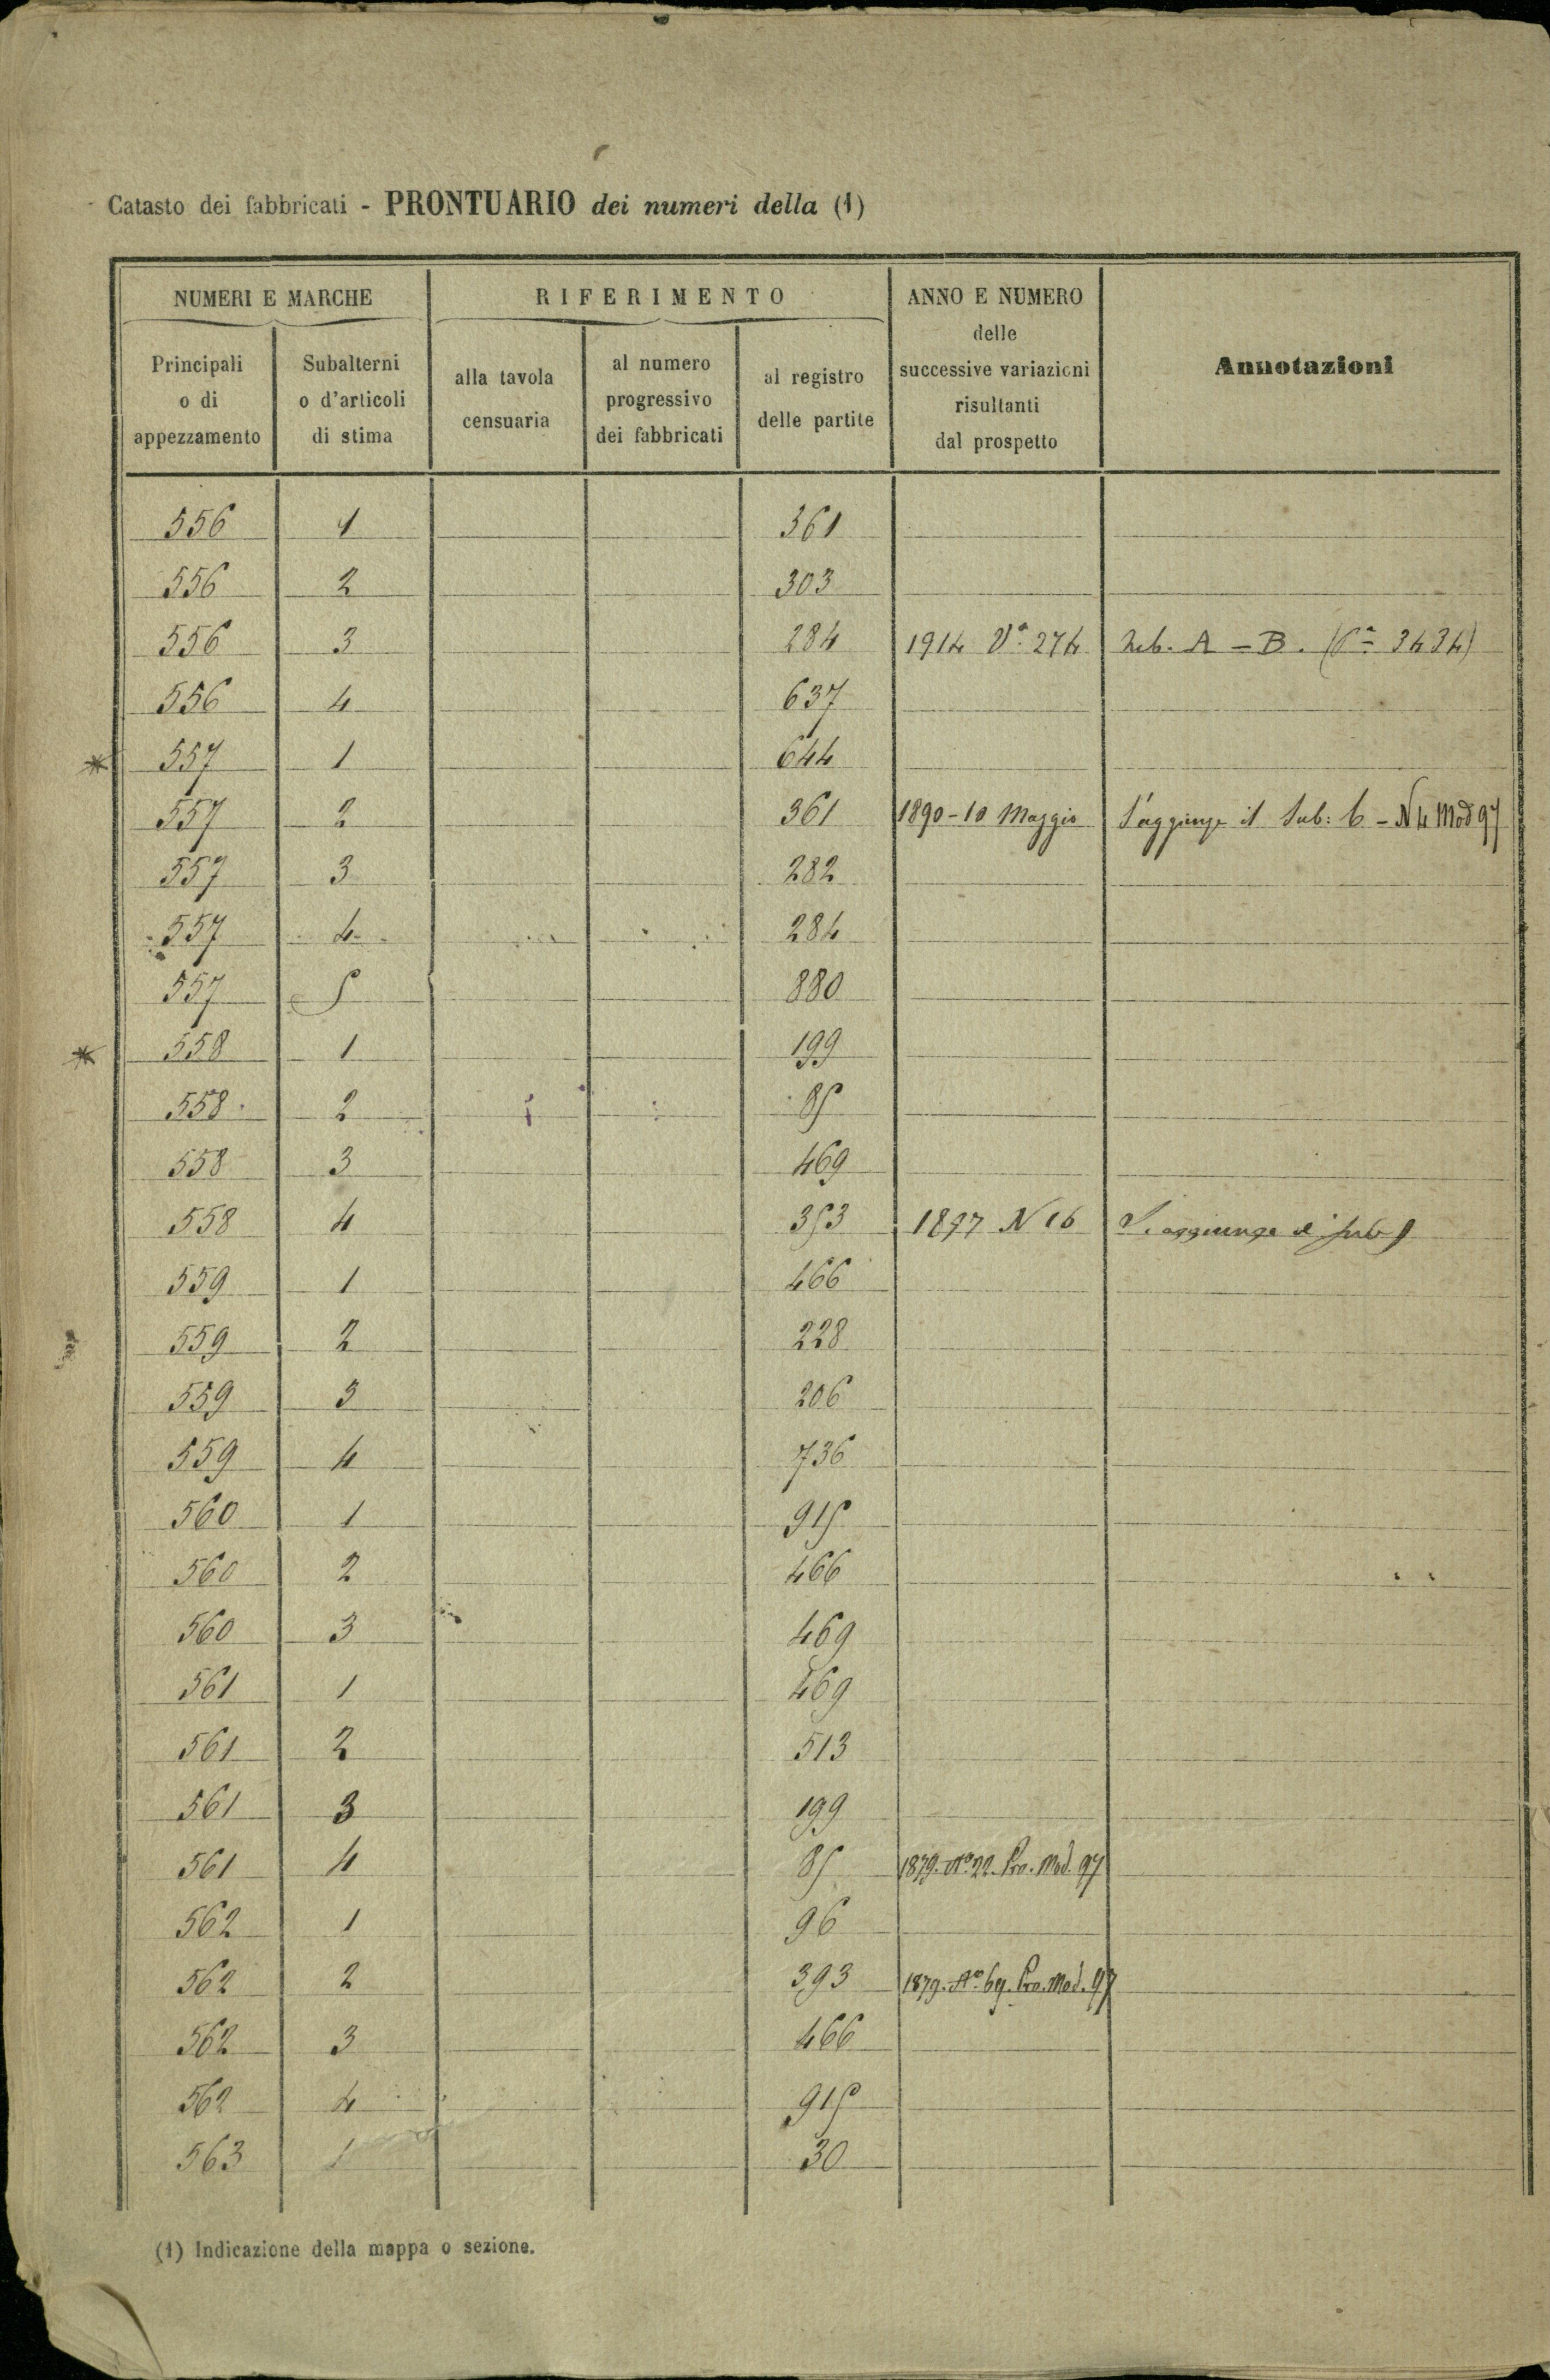 Catasto dei fabbricati - PRONTUARIO dei numeri della (1)
NUMERI E MARCHE
RIFERIMENTO
ANNO E NUMERO delle successive variazioni risultanti dal prospetto
Annotazioni
Principali o di appezzamento
Subalterni o d'articoli di stima
alla tavola censuaria
al numero progressivo dei fabbricati
al registro delle partite
556 1 361
556 2 303
556 3 284 1914 Vª 274 A - B. 3434)
556 4 637
* 557 1 644
557 2 361 1890 - 10 Maggio S'aggiunge il Sub: 6 - N 4 Mod 97
557 3 282
557 4 284
557 5 880
* 558 1 199
558 2 85
558 3 469
558 4 353 1897 N 16 Si aggiunge il sub 5
559 1 466
559 2 228
559 3 206
559 4 736
560 1 915
560 2 466
560 3 469
561 1 469
561 2 513
561 3 199
561 4 85 1879. Nº 22. Pro. Mod. 97
562 1 96
562 2 393 1879. Nº 69. Pro. Mod. 97
562 3 466
562 4 915
563 1 30
(1) Indicazione della mappa o sezione.